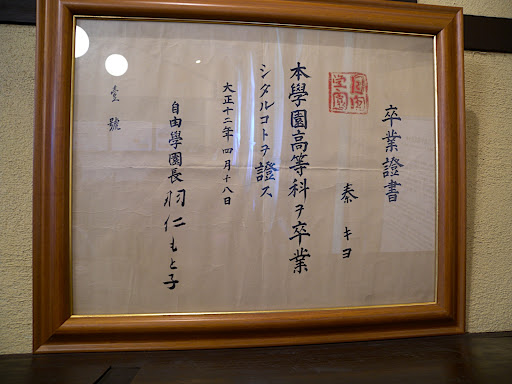 卒業證書
秦キヨ
本學園高等科ヲ卒業
シタルコトヲ證ス
大正十二年四月十八日
自由學園長 羽仁もと子
壹號
自由
學園